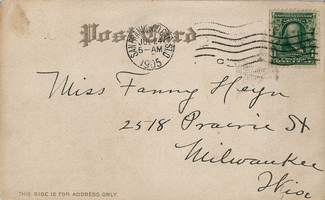 Post Card
6-AM
1905
Miss Fanny Heyn
2518 Prairie St
Milwaukee
Wisc
THIS SIDE IS FOR ADDRESS ONLY.